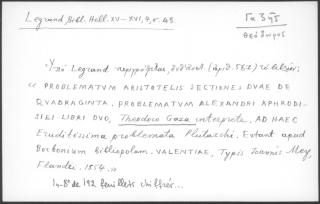 Legrand Bibl. Hell. XV-XVI, 4, σ. 45.
Γα 3
Θεόδωρος
Ὑπὸ Legrand περιγράφεται, (ἀριθ. 567) τὸ
« PROBLEMATVM ARISTOTELIS SECTIONES DVAE DE
QVADRAGINTA. PROBLEMATVM ALEXANDRI APHRODI-
SIEI LIBRI DVO, Theodoro Gaza interprete. AD HAEC
Eruditissima problemata Plutarchi. Extant apud
Borbonium bibliopolam. VALENTIAE, Typis Ioannis Mey,
Flandri. 1554.»
In-8º de 192 feuillets chiffrés...